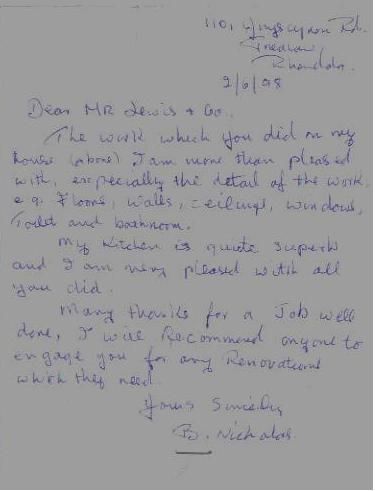 110, Ynyscynon Rd.
Trealaw,
Rhondda.
2/6/98
Dear MR Lewis & Co.,
The work which you did on my
house (above) I am more than pleased
with, expecially the detail of the work,
e.g. Floors, walls, ceilings, windows,
Toilet and bathroom.
My Kitchen is quote superb
and I am very pleased with all
you did.
Many thanks for a Job well
done, I will Recommend anyone to
engage you for any Renovations
which they need.
Yours Sincerely
B. Nicholas